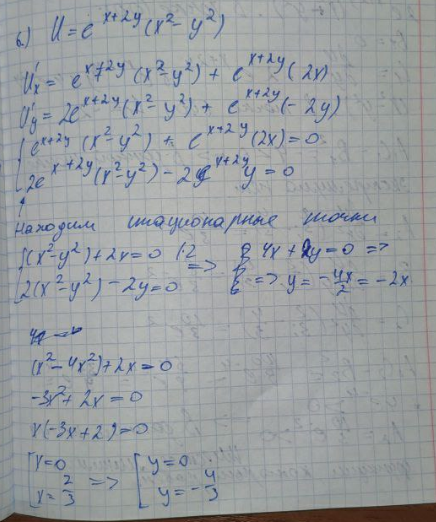 б.) U = e^{x+2y}(x²-y²)
U'x = e^{x+2y}(x²-y²) + e^{x+2y}(2x)
U'y = 2e^{x+2y}(x²-y²) + e^{x+2y}(-2y)
{ e^{x+2y}(x²-y²) + e^{x+2y}(2x) = 0
2e^{x+2y}(x²-y²) - 2e^{x+2y}y = 0
Находим стационарные точки
{ (x²-y²)+2x=0 |·2 => { 4x+2y=0 =>
2(x²-y²)-2y=0 => y = -4x/2 = -2x
(x²-4x²)+2x=0
-3x²+2x=0
x(-3x+2)=0
[ x=0 => [ y=0
x=2/3 y=-4/3